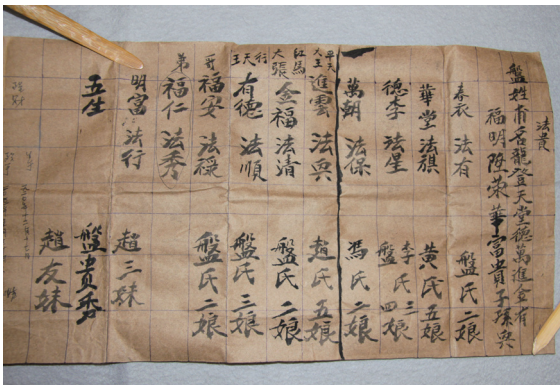 法貴
盤姓有名龍登天堂德萬進金有
福明陞榮華富貴子孫興
春衣 法有 盤氏二娘
華堂 法旗 黃氏五娘
德季 法星 李氏三
盤 四娘
萬朝 法保 馮氏二娘
平天
大王 進雲 法兵 趙氏五娘
紅馬
大張 金福 法清 盤氏二娘
行天王 有德 法順 盤氏三娘
哥 福安 法穩 盤氏二娘
弟 福仁 法秀
明富 法行 趙三妹
五生 盤貴秀
趙友妹